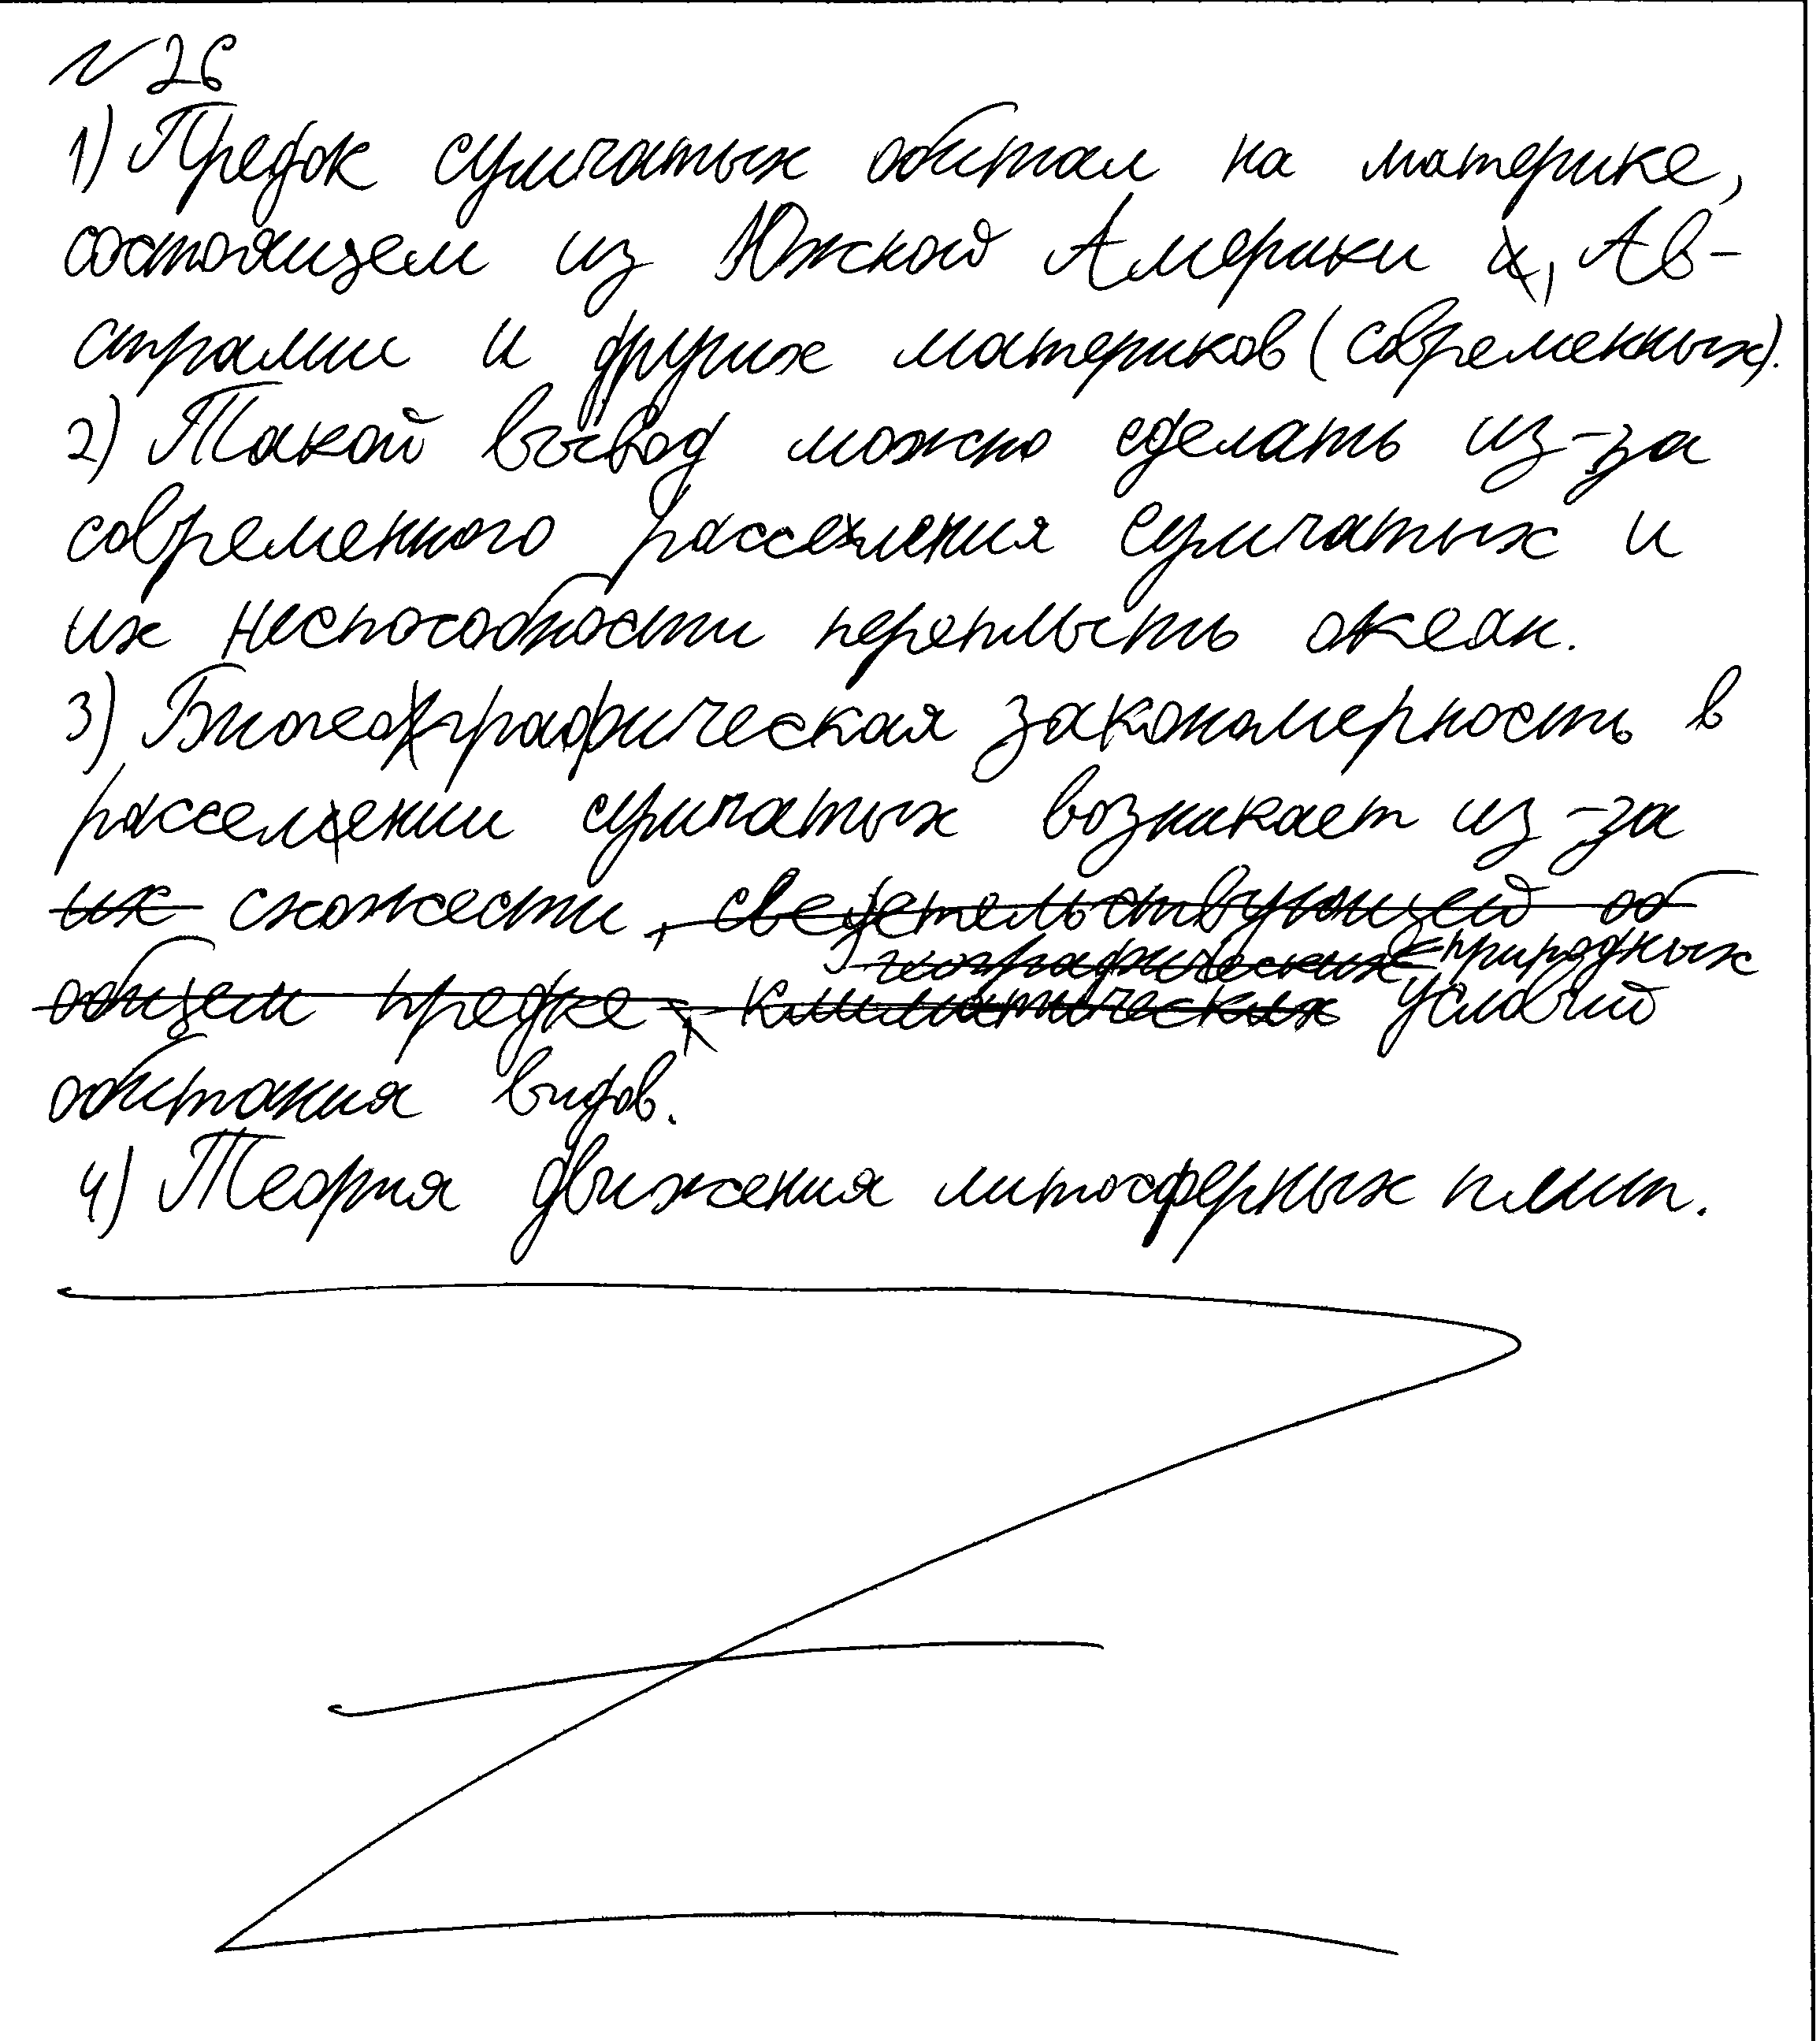 №26
1) Предок сумчатых обитал на материке,
состоящем из Южной Америки, Ав-
стралии и других материков (современных).
2) Такой вывод можно сделать из-за
современного расселения сумчатых и
их неспособности переплыть океан.
3) Биогеографическая закономерность в
расселении сумчатых возникает из-за
их схожести, сведетельствующей об
географических природных
общем предке, климатических условий
обитания видов.
4) Теория движения литосферных плит.